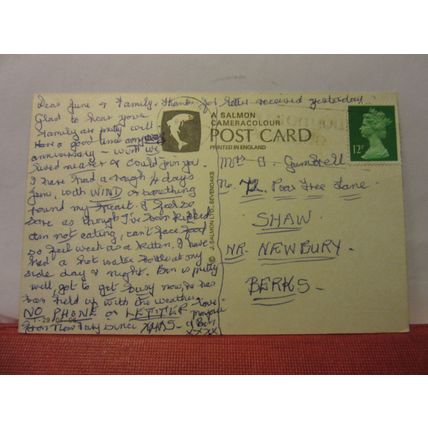 Dear June & Family, Thanks for letter received yesterday.
Glad to hear your
Family are pretty well
Have a good time
anniversary - wish we
lived nearer & could join you.
I have had a rough 10 days
June, with WIND or something
round my Heart. I feel so
sore as though I've been kicked
am not eating, can't face food
so feel weak as a kitten, I have
had a hot water bottle at my
side day & night. Ben is pretty
well, got to get busy now, as he's
been held up with the weather.
NO PHONE or LETTER
from New Bury since XMAS.
Love
& Ben
xxxx
A SALMON
CAMERACOLOUR
POST CARD
PRINTED IN ENGLAND
© J. SALMON LTD., SEVENOAKS
12P
Pear Tree Lane
SHAW
NR. NEWBURY.
BERKS.